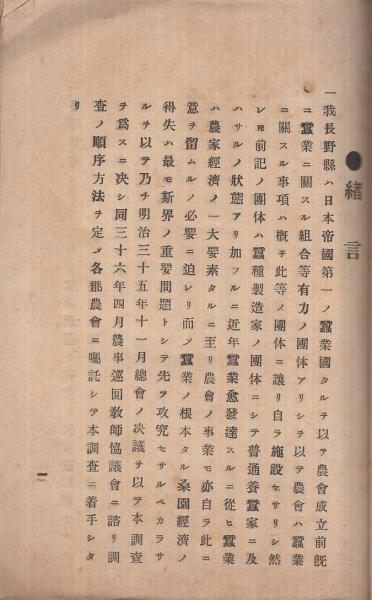 ●緒言
一我長野縣ハ日本帝國第一ノ蠶業國タルヲ以テ農會成立前既
ニ蠶業ニ關スル組合等有力ノ團体アリシヲ以テ農會ハ蠶業
ニ關スル事項ハ概子此等ノ團体ニ讓リ自ラ施設セサリシ然
レ𪜈前記ノ團体ハ蠶種製造家ノ團体ニシテ普通養蠶家ニ及
ハサルノ狀態アリ加フルニ近年蠶業愈發達スルニ從ヒ蠶業
ハ農家經濟ノ一大要素タルニ至リ農會ノ事業モ亦自ラ此ニ
意ヲ留ムルノ必要ニ迫レリ而〆蠶業ノ根本タル桑園經濟ノ
得失ハ最モ斯界ノ重要問題トシテ先ツ攻究セサルヘカラサ
ルヲ以テ乃チ明治三十五年十一月總會ノ决議ヲ以テ本調査
ヲ爲スニ决シ同三十六年四月農事巡回敎師協議會ニ諮リ調
査ノ順序方法ヲ定メ各郡農會ニ囑託シテ本調査ニ着手シタ
リ
一